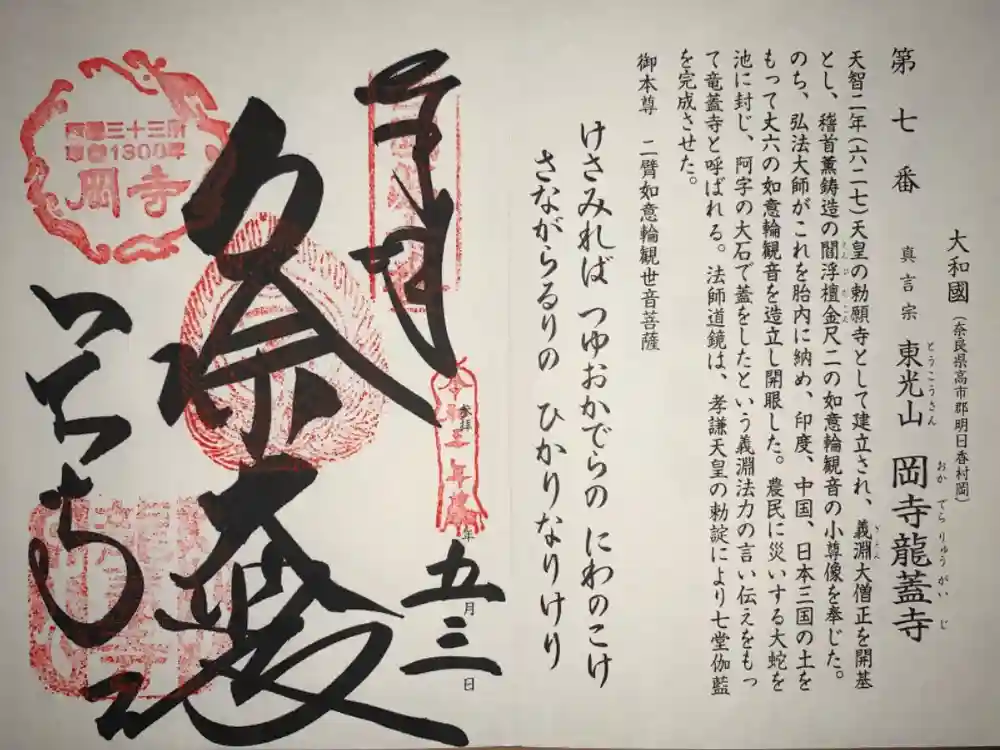 第七番
大和國(奈良県高市郡明日香村岡)
真言宗 東光山 岡寺龍蓋寺
とうこうさん おかでらりゅうがいじ
天智二年(六二七)天皇の勅願寺として建立され、義淵大僧正を開基
とし、稽首薫鋳造の閻浮檀金尺二の如意輪観音の小尊像を奉じた。
のち、弘法大師がこれを胎内に納め、印度、中国、日本三国の土を
もって丈六の如意輪観音を造立し開眼した。農民に災いする大蛇を
池に封じ、阿字の大石で蓋をしたという義淵法力の言い伝えをもっ
て竜蓋寺と呼ばれる。法師道鏡は、孝謙天皇の勅諚により七堂伽藍
を完成させた。
御本尊 二臂如意輪観世音菩薩
けさみれば つゆおかでらの にわのこけ
さながらるりの ひかりなりけり
参拝
年
五月三日
西国三十三所
草創1300年
岡寺